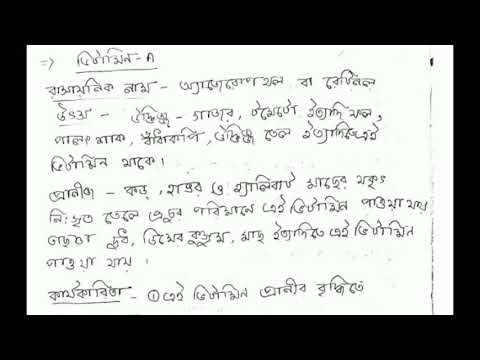 => ভিটামিন-A
রাসায়নিক নাম - অ্যাজেরোপথল বা রেটিনল
উৎস - উদ্ভিজ্জ - গাজর, টমেটো ইত্যাদি ফল,
পালং শাক, বাঁধাকপি, উদ্ভিজ্জ তেল ইত্যাদিতে এই
ভিটামিন থাকে।
প্রানীজ - কড, হাঙর ও হ্যালিবাট মাছের যকৃৎ
নিঃসৃত তেলে প্রচুর পরিমানে এই ভিটামিন পাওয়া যায়
তাছাড়া দুধ, ডিমের কুসুম, মাছ ইত্যাদিতে এই ভিটামিন
পাওয়া যায়।
কার্যকারিতা - ① এই ভিটামিন প্রানীর বৃদ্ধিতে